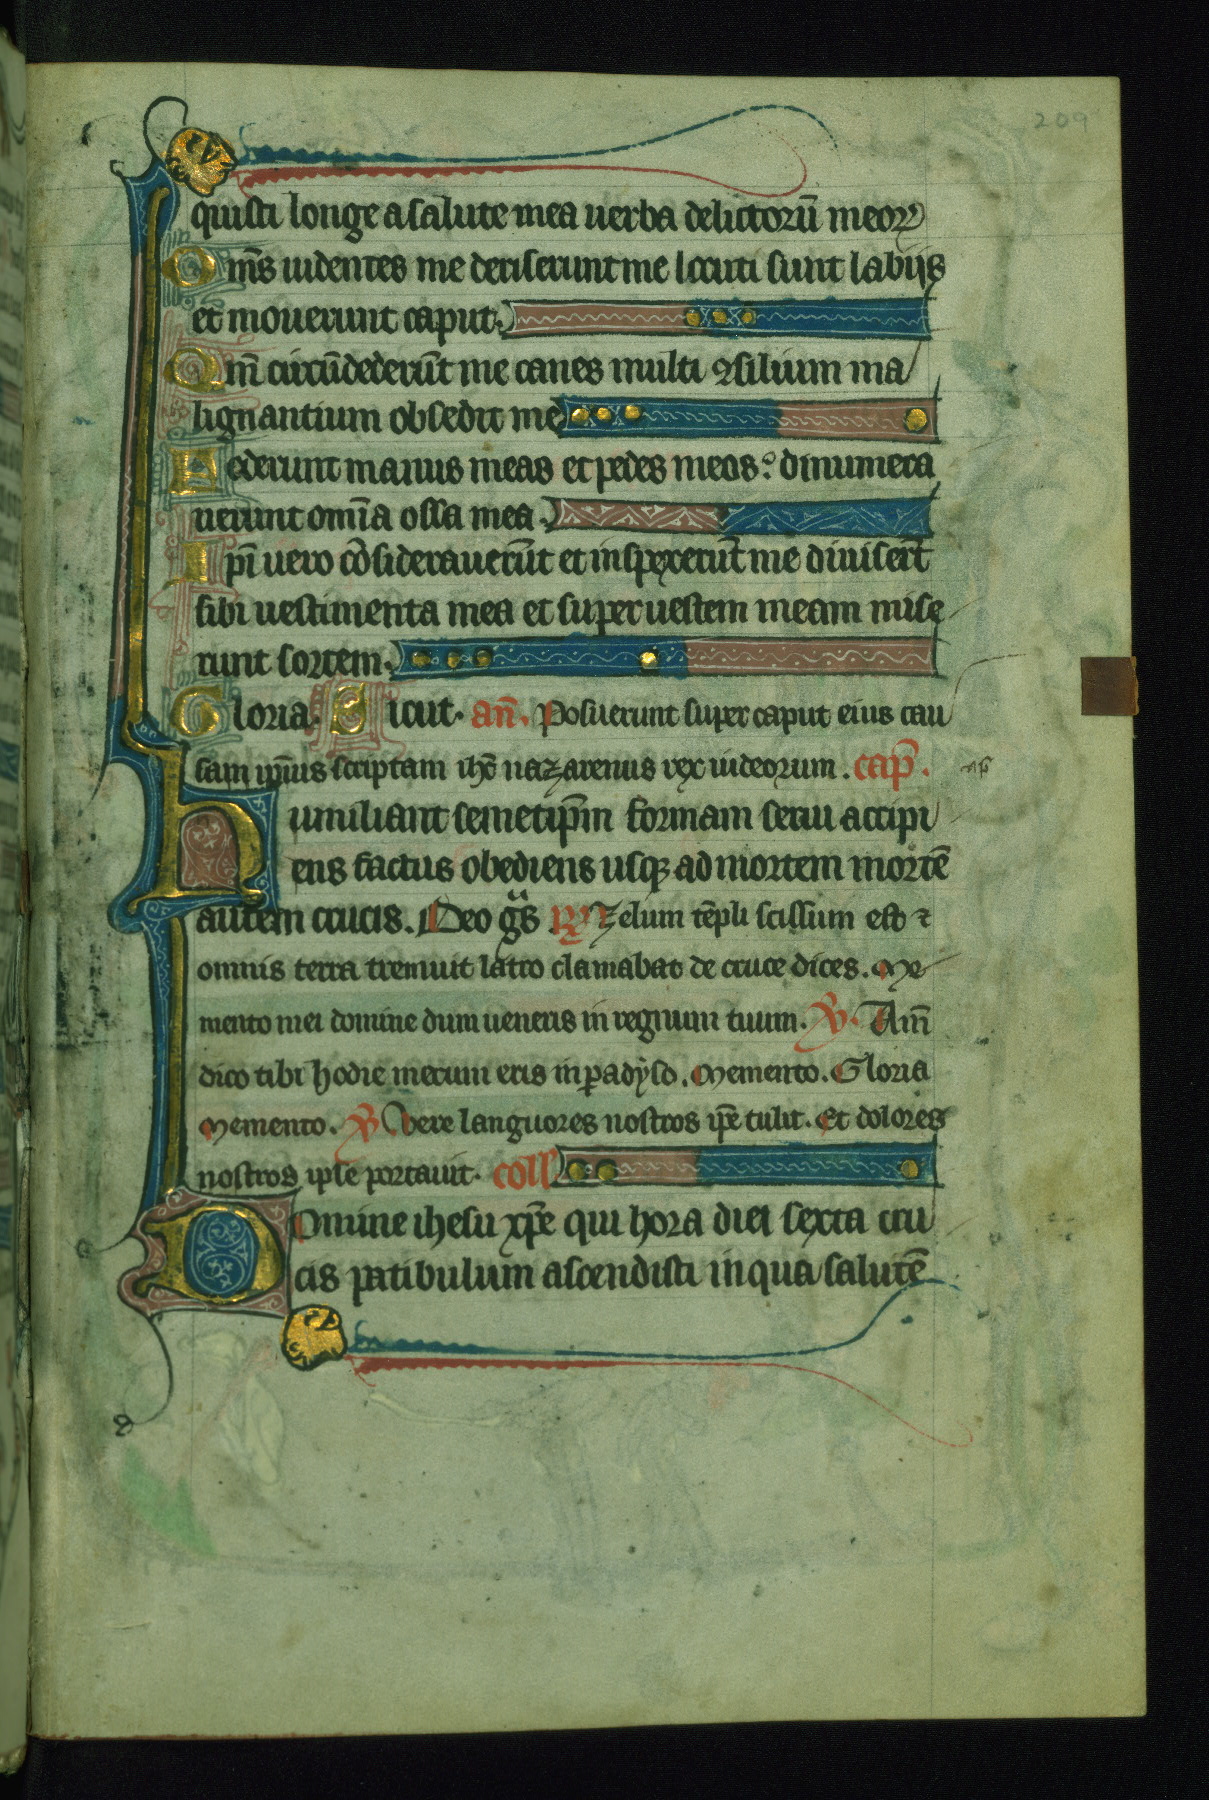 209
quisti longe a salute mea uerba delictorū meoꝝ
Om̄s uidentes me deriserunt me locuti sunt labijs
et mouerunt caput.
Qm̄ circūdederūt me canes multi ꝯsilium ma
lignantium obsedit me
Federunt manus meas et pedes meos: dinumera
uerunt om̄ia ossa mea.
Ipi̅ uero cōsiderauerūt et inspexerūt me diuiserт̄
sibi uestimenta mea et super uestem meam mise
runt sortem.
Gloria. Sicut. an̄. Posuerunt super caput eius cau
sam ip̄ius scriptam ihc̄ nazarenus rex iudeorum. cap̄.
Humiliauit semetip̄m formam serui accipi
ens factus obediens usqꝫ ad mortem mortē
autem crucis. Deo gͣs ℟ Zelum tēpli scissum est ⁊
omnis terra tremuit latro clamabat de cruce dices. Me
mento mei domine dum ueneris in regnum tuum. ℣. Am̄
dico tibi hodie mecum eris in ꝑadyso. Memento. Gloria
Memento. ℣ Vere languores nostros ip̄e tulit. Et dolores
nostros ipse portauit. coll
Domine ihesu xp̄e qui hora diei sexta cru
cis patibulum ascendisti in qua salutē